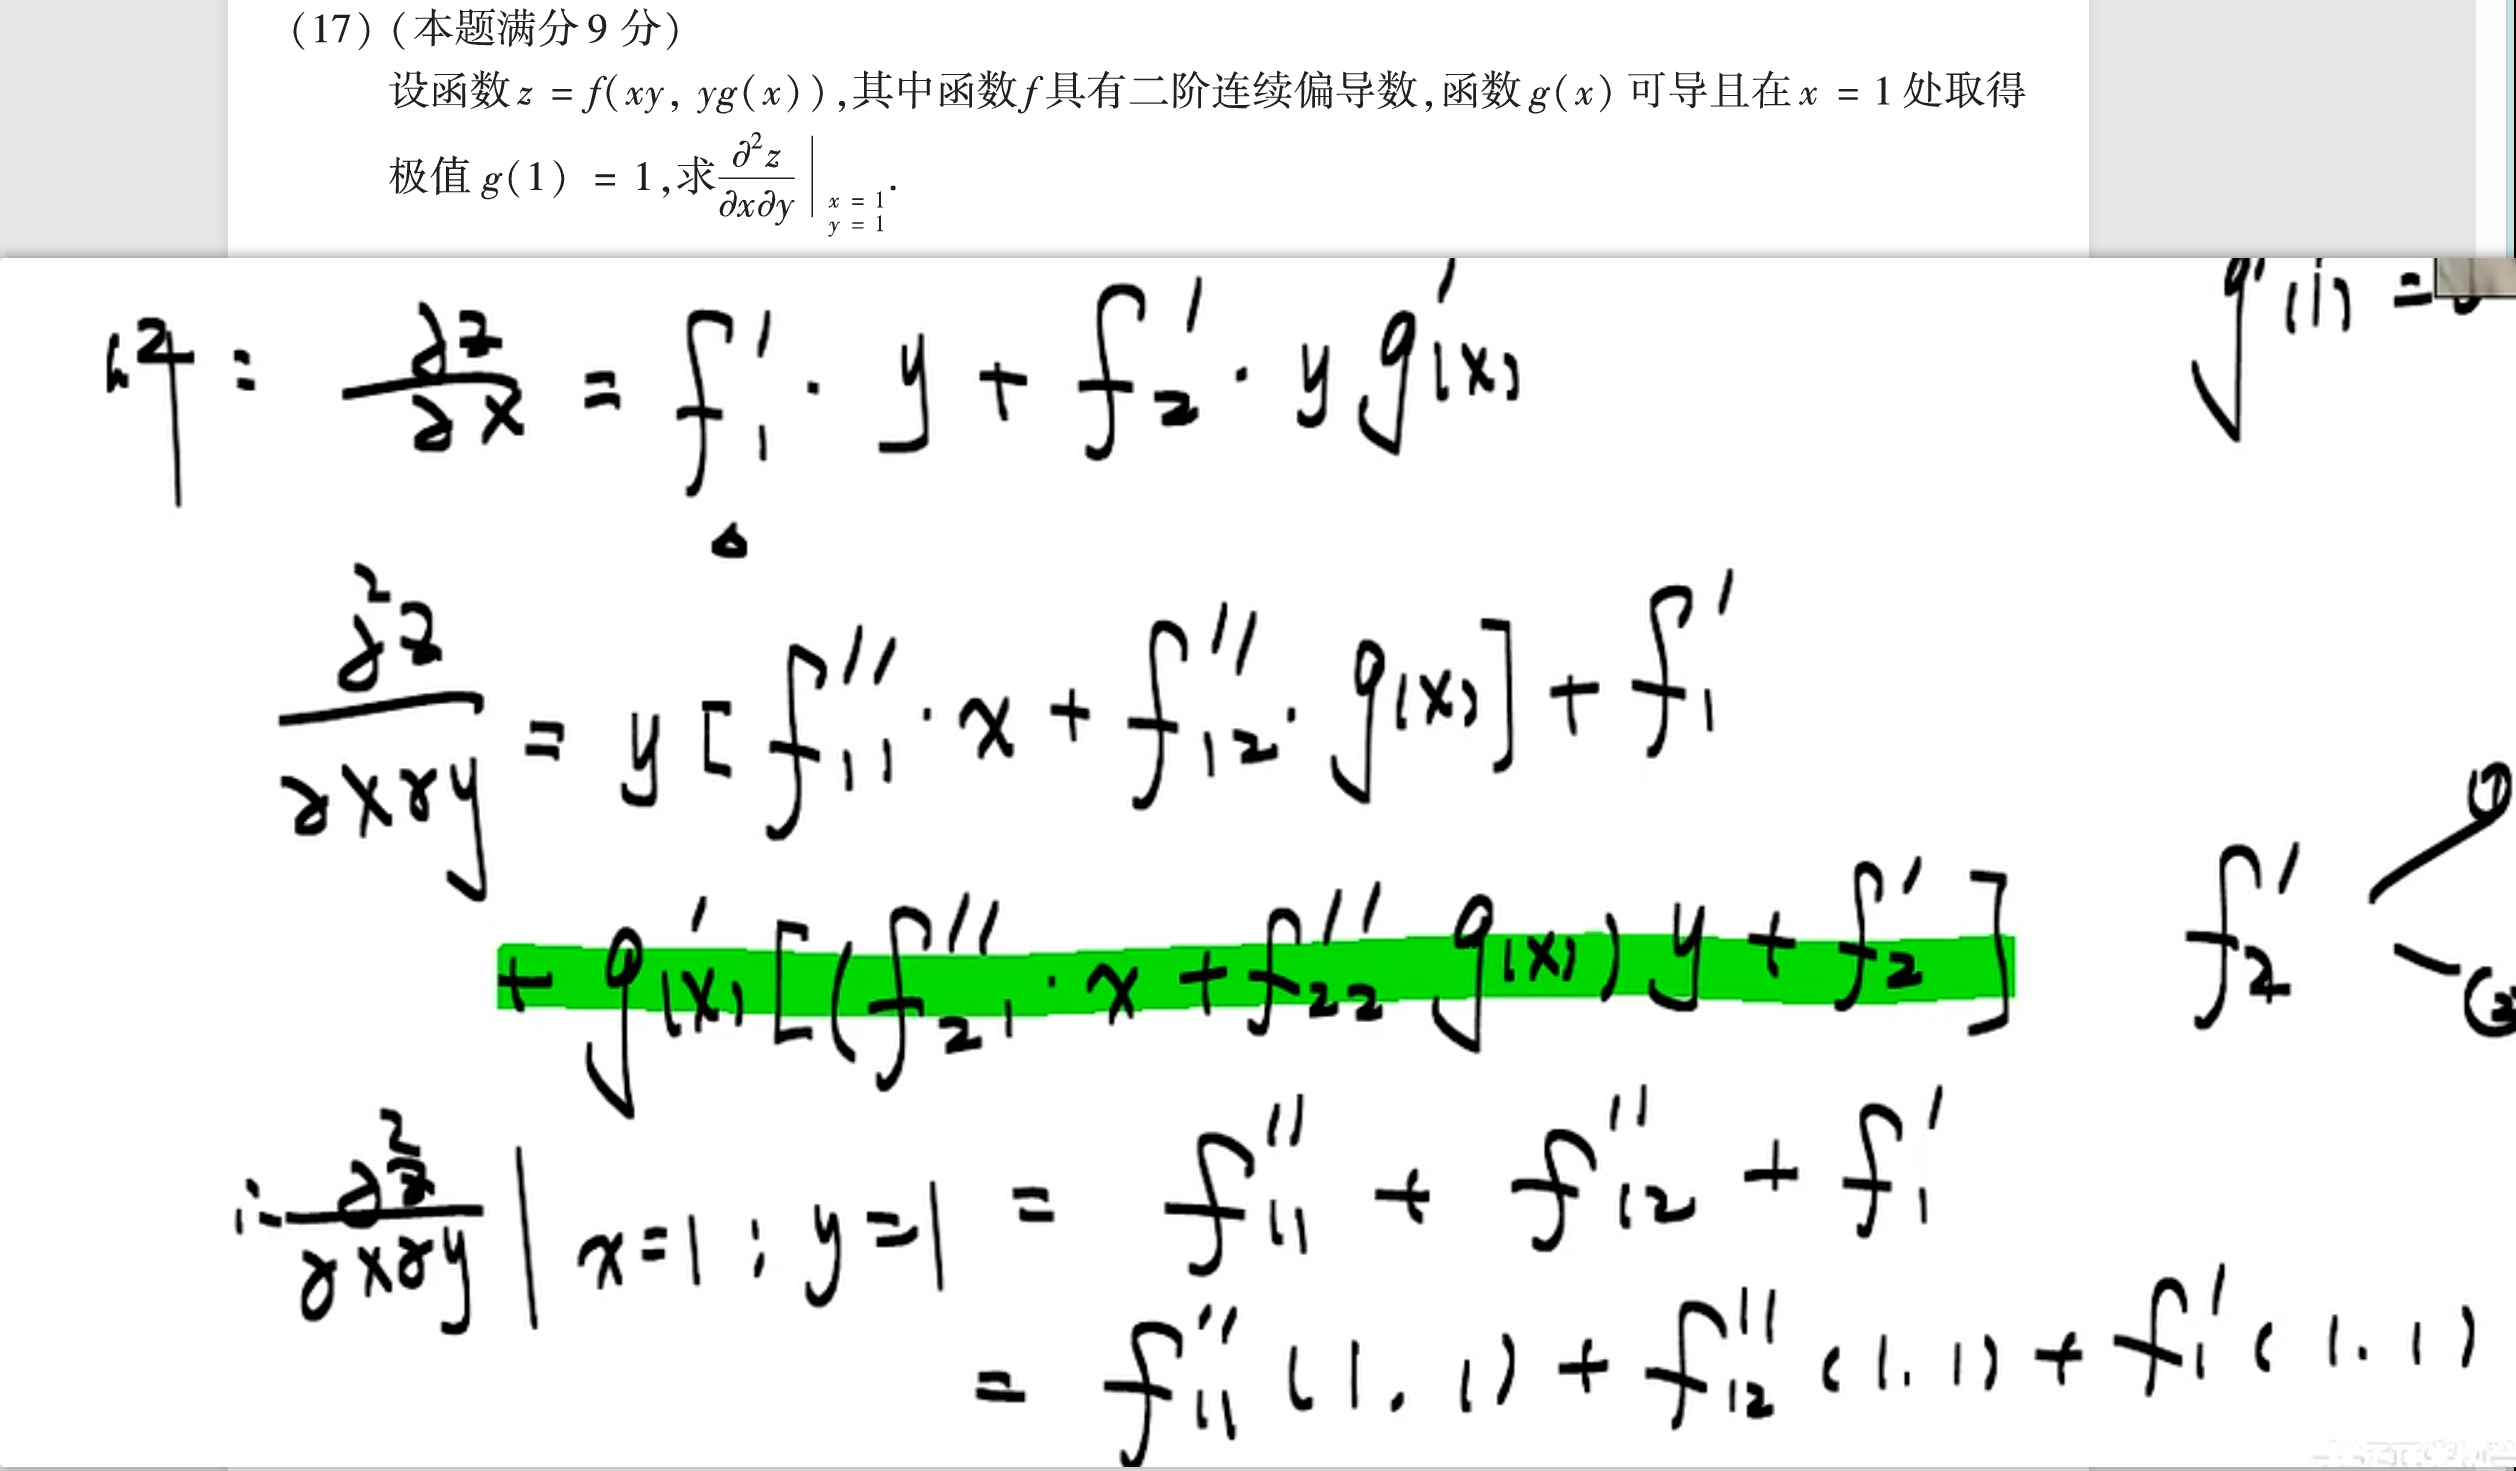 (17) (本题满分 9 分)
设函数 z = f(xy, yg(x)),其中函数 f 具有二阶连续偏导数,函数 g(x) 可导且在 x = 1 处取得
极值 g(1) = 1,求 ∂²z/∂x∂y | x = 1 y = 1 .
∂z/∂x = f₁′ · y + f₂′ · y g′(x)
g′(1) =
∂²z/∂x∂y = y [ f₁₁″ · x + f₁₂″ · g(x) ] + f₁′
+ g′(x) [ ( f₂₁″ · x + f₂₂″ g(x) ) y + f₂′ ]
f₂′ ① ②
∴ ∂²z/∂x∂y | x=1 ; y=1 = f₁₁″ + f₁₂″ + f₁′
= f₁₁″ (1, 1) + f₁₂″ (1, 1) + f₁′ (1, 1)